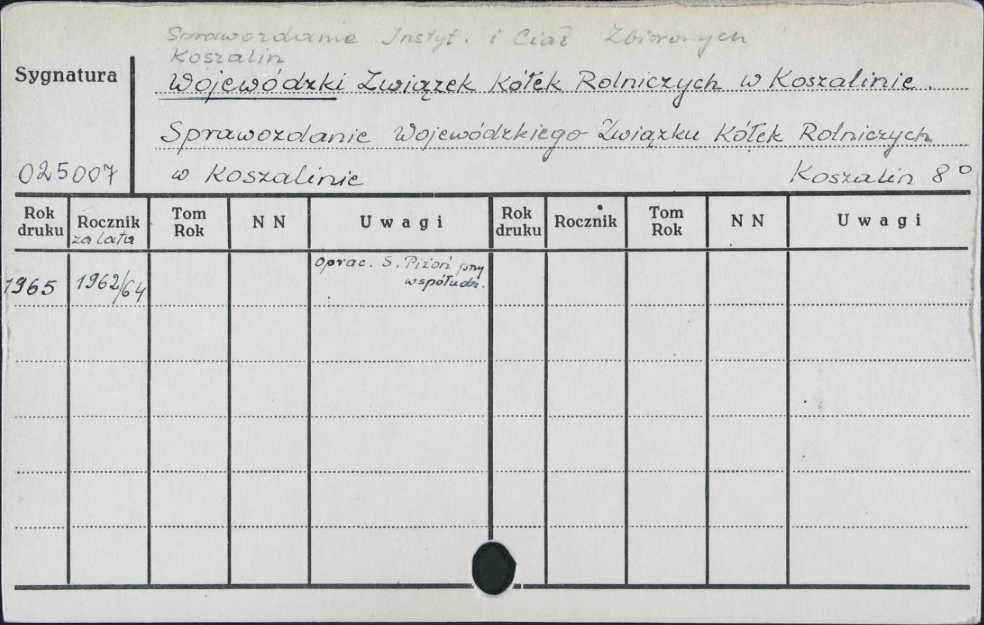 Sprawozdanie Instyt. i Ciał Zbiorowych
Koszalin
Sygnatura
Wojewódzki Związek Kółek Rolniczych w Koszalinie.
Sprawozdanie Wojewódzkiego Związku Kółek Rolniczych
025007 w Koszalinie Koszalin 8°
Rok druku Rocznik za lata Tom Rok N N Uwagi Rok druku Rocznik Tom Rok N N Uwagi
1965 1962/64 Oprac. S. Pizoń przy
współudz.